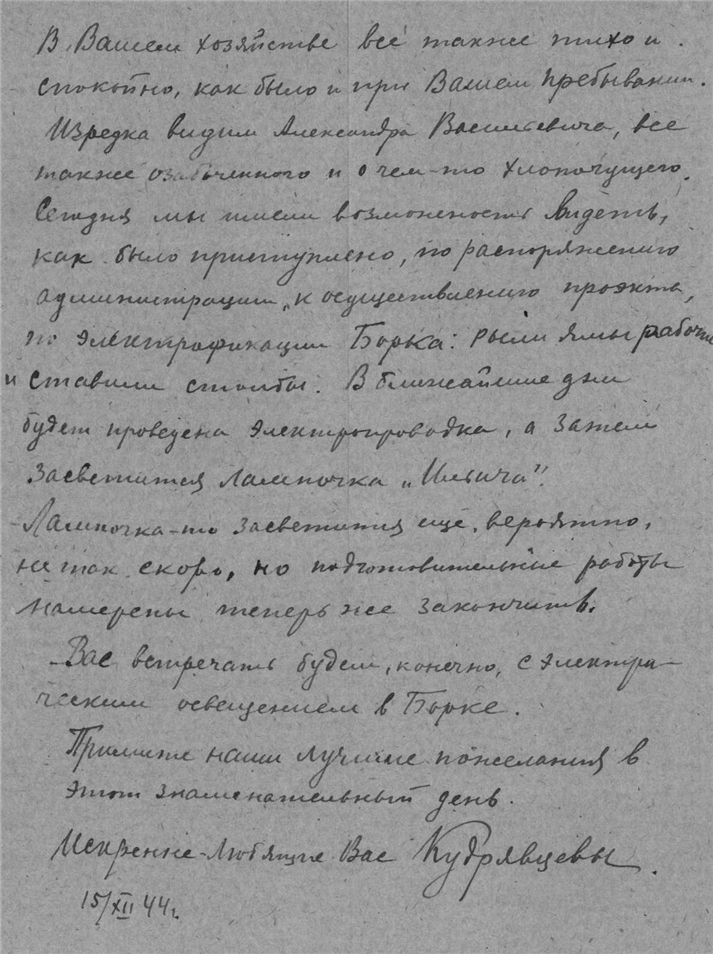 В Вашем хозяйстве всё также тихо и
спокойно, как было и при Вашем пребывании.
Изредка видим Александра Васильевича, все
также озабоченного и о чем-то хлопочущего.
Сегодня мы имели возможность видеть,
как было приступлено, по распоряжению
администрации, к осуществлению проэкта,
по электрофикации Борка: рыли ямы рабочие
и ставили столбы. В ближайшие дни
будет проведена электропроводка, а затем
засветится лампочка „Ильича".
Лампочка-то засветится ещё, вероятно,
не так скоро, но подготовительные работы
намерены теперь же закончить.
Вас встречать будем, конечно, с электри-
ческим освещением в Борке.
Примите наши лучшие пожелания в
этот знаменательный день.
Искренне-любящие Вас Кудрявцевы.
15/XII 44г.